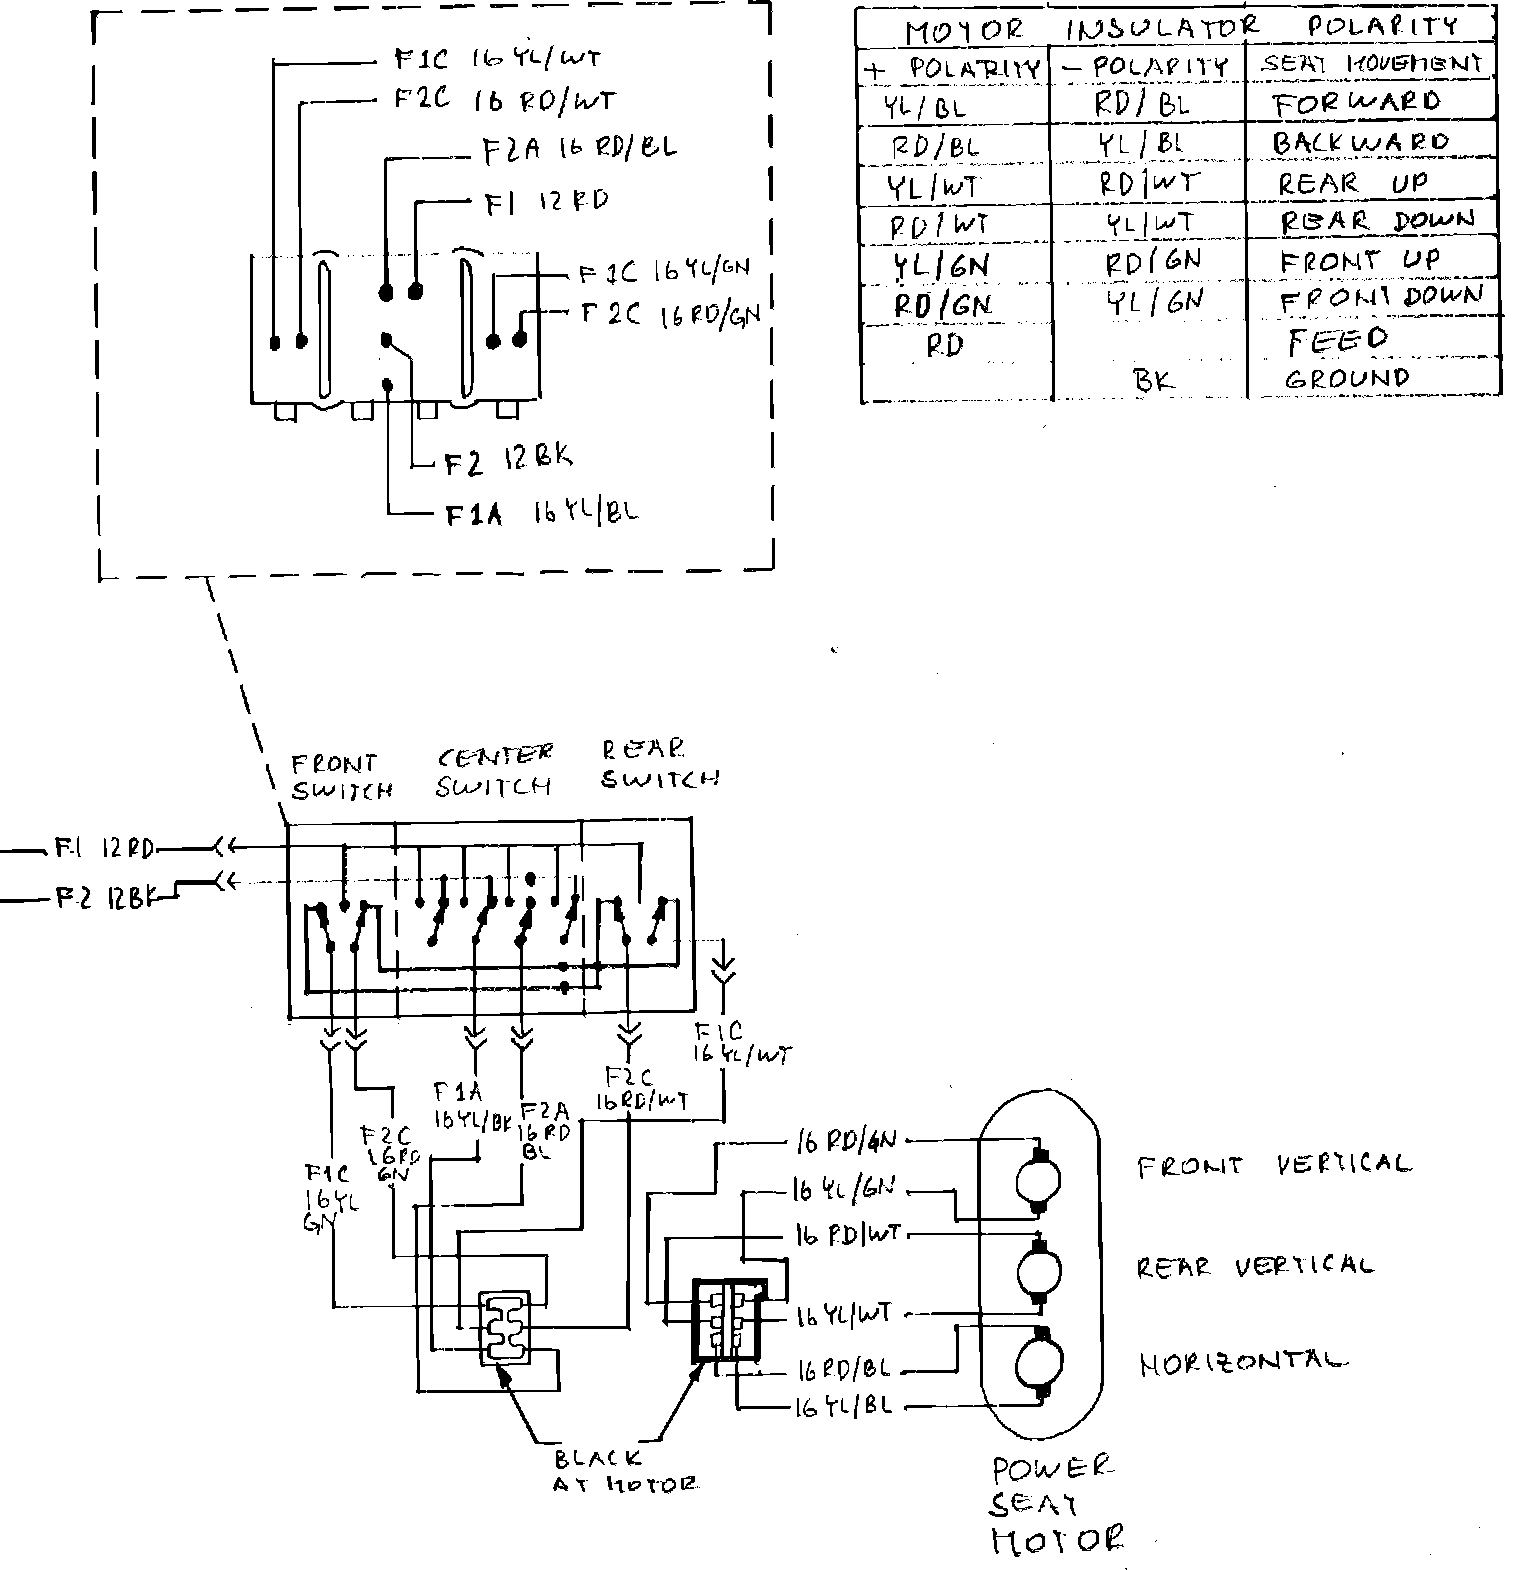 F1C 16 YL/WT
F2C 16 RD/WT
F2A 16 RD/BL
F1 12 RD
F1C 16 YL/GN
F2C 16 RD/GN
F2 12BK
F1A 16 YL/BL
MOTOR INSULATOR POLARITY
+ POLARITY - POLARITY SEAT MOVEMENT
YL/BL RD/BL FORWARD
RD/BL YL/BL BACKWARD
YL/WT RD/WT REAR UP
RD/WT YL/WT REAR DOWN
YL/GN RD/GN FRONT UP
RD/GN YL/GN FRONT DOWN
RD FEED
BK GROUND
FRONT
SWITCH
CENTER
SWITCH
REAR
SWITCH
F1 12RD
F2 12BK
F1C
16 YL/WT
F2C
16 RD/WT
F1A
16 YL/BK
F2A
16 RD
BL
F2C
16 RD
GN
F1C
16 YL
GN
16 RD/GN
16 YL/GN
16 RD/WT
16 YL/WT
16 RD/BL
16 YL/BL
FRONT VERTICAL
REAR VERTICAL
HORIZONTAL
BLACK
AT MOTOR
POWER
SEAT
MOTOR